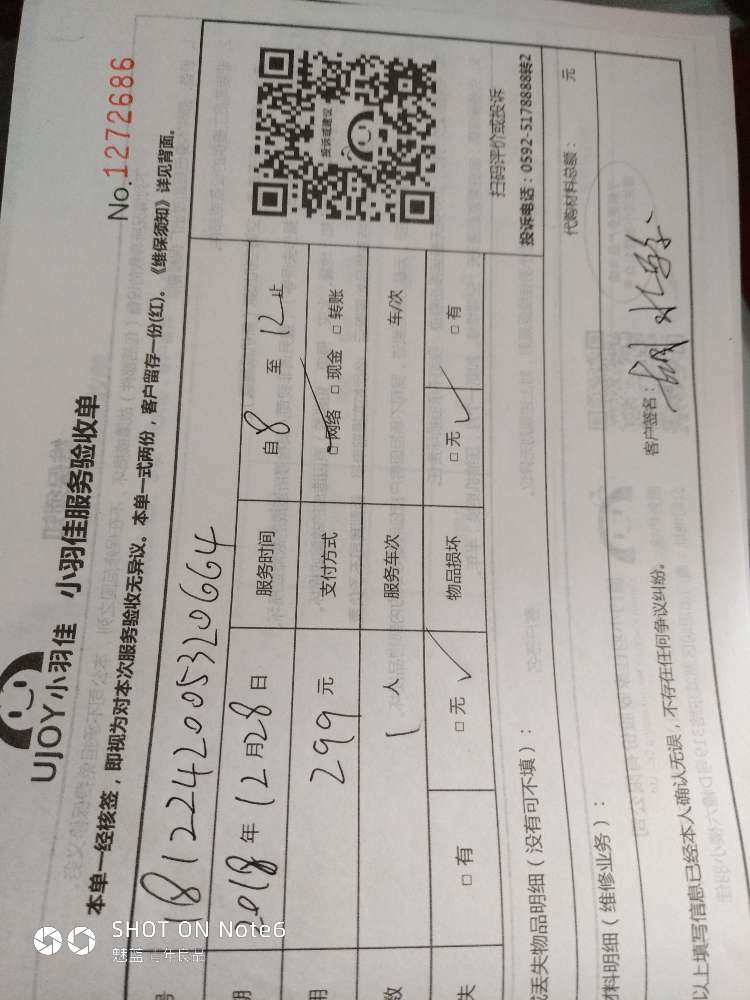 UJOY小羽佳 小羽佳服务验收单
No.1272686
本单一经核签，即视为对本次服务验收无异议。本单一式两份，客户留存一份(红)。《维保须知》详见背面。
号 1812242005320664
期 2018年12月28日 服务时间 自8 至 12止
用 299元 支付方式 □网络 □现金 □转账
数 1人 服务车次 车/次
失 □有 □无 物品损坏 □无 □有
投诉或建议
扫码评价或投诉
投诉电话：0592-5178888转2
丢失物品明细（没有可不填）：
料明细（维修业务）：
代购材料总额： 元
以上填写信息已经本人确认无误，不存在任何争议纠纷。
客户签名：
SHOT ON Note6
魅蓝 青年良品